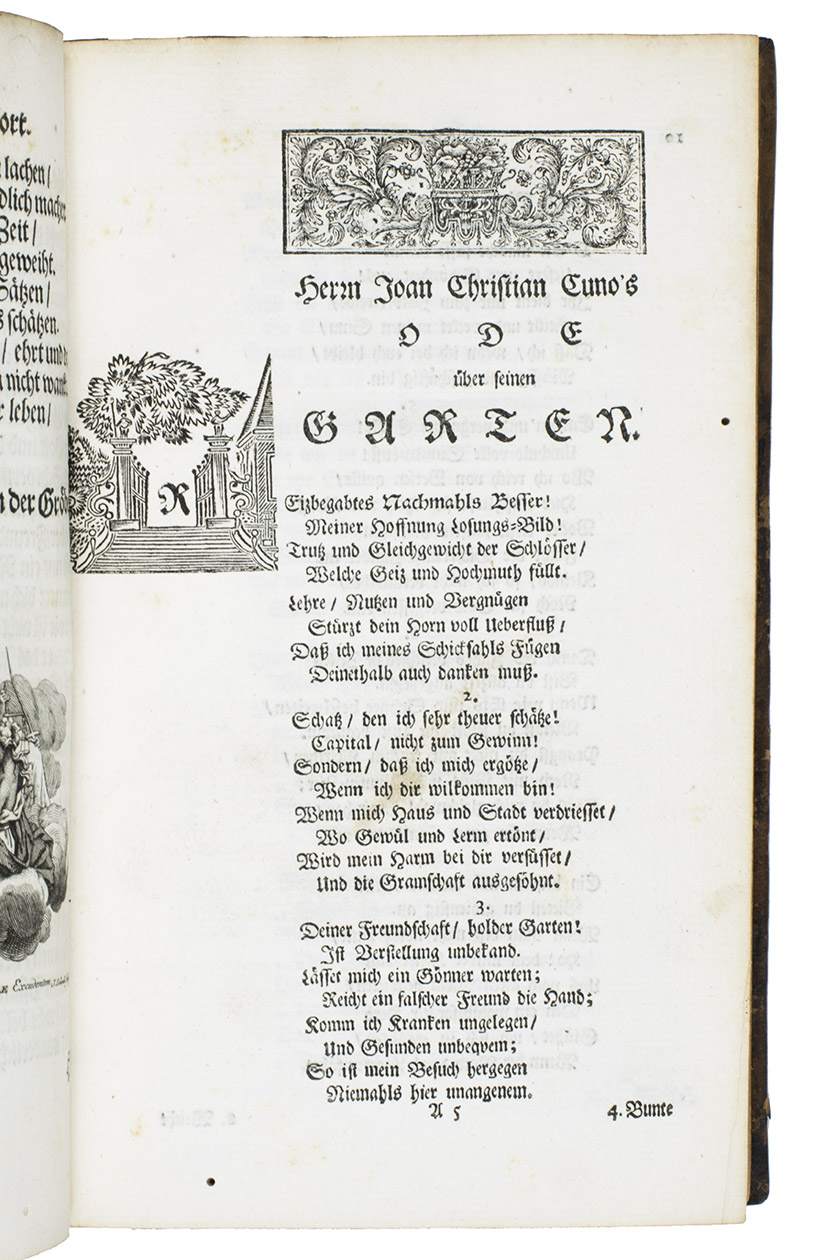 ort.
lachen/
dlich mach
Zeit/
geweiht.
Sätzen/
s schätzen.
/ ehrt und
nicht
leben/
n der Grö
Herrn Joan Christian Cuno's
O D E
über seinen
G A R T E N.
R
Eizbegabtes Nachmahls Besser!
Meiner Hoffnung Losungs-Bild!
Trutz und Gleichgewicht der Schlösser/
Welche Geiz und Hochmuth füllt.
Lehre/ Nutzen und Vergnügen
Stürzt dein Horn voll Ueberfluß/
Daß ich meines Schicksahls Fügen
Deinethalb auch danken muß.
2.
Schatz/ den ich sehr theuer schätze!
Capital/ nicht zum Gewinn!
Sondern/ daß ich mich ergötze/
Wenn ich dir wilkommen bin!
Wenn mich Haus und Stadt verdriesset/
Wo Gewül und Lerm ertönt/
Wird mein Harm bei dir versüsset/
Und die Gramschaft ausgesöhnt.
3.
Deiner Freundschaft/ holder Garten!
Ist Verstellung unbekand.
Lässet mich ein Gönner warten;
Reicht ein falscher Freund die Hand;
Komm ich Kranken ungelegen/
Und Gesunden unbeqvem;
So ist mein Besuch hergegen
Niemahls hier unangenem.
A 5 4. Bunte